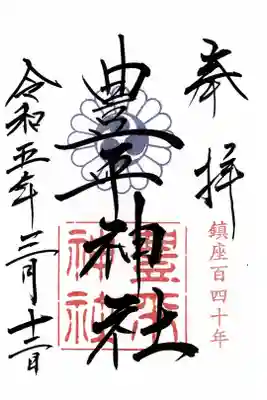 奉拝
鎮座百四十年
豊平神社
豊平神社
令和五年三月十二日